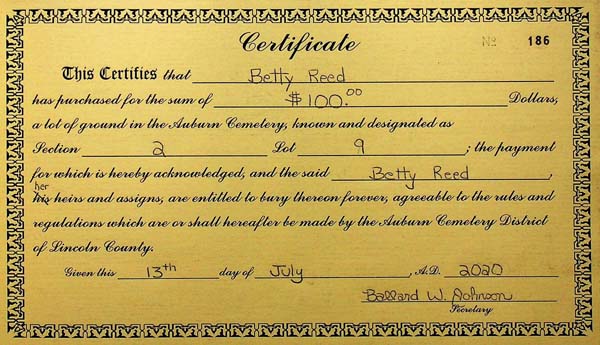 Certificate
No 186
This Certifies that Betty Reed
has purchased for the sum of $100.00 Dollars,
a lot of ground in the Auburn Cemetery, known and designated as
Section 2 Lot 9 ; the payment
for which is hereby acknowledged, and the said Betty Reed ,
her
his heirs and assigns, are entitled to bury thereon forever, agreeable to the rules and
regulations which are or shall hereafter be made by the Auburn Cemetery District
of Lincoln County.
Given this 13th day of July , A.D. 2020
Ballard W. Johnson
Secretary